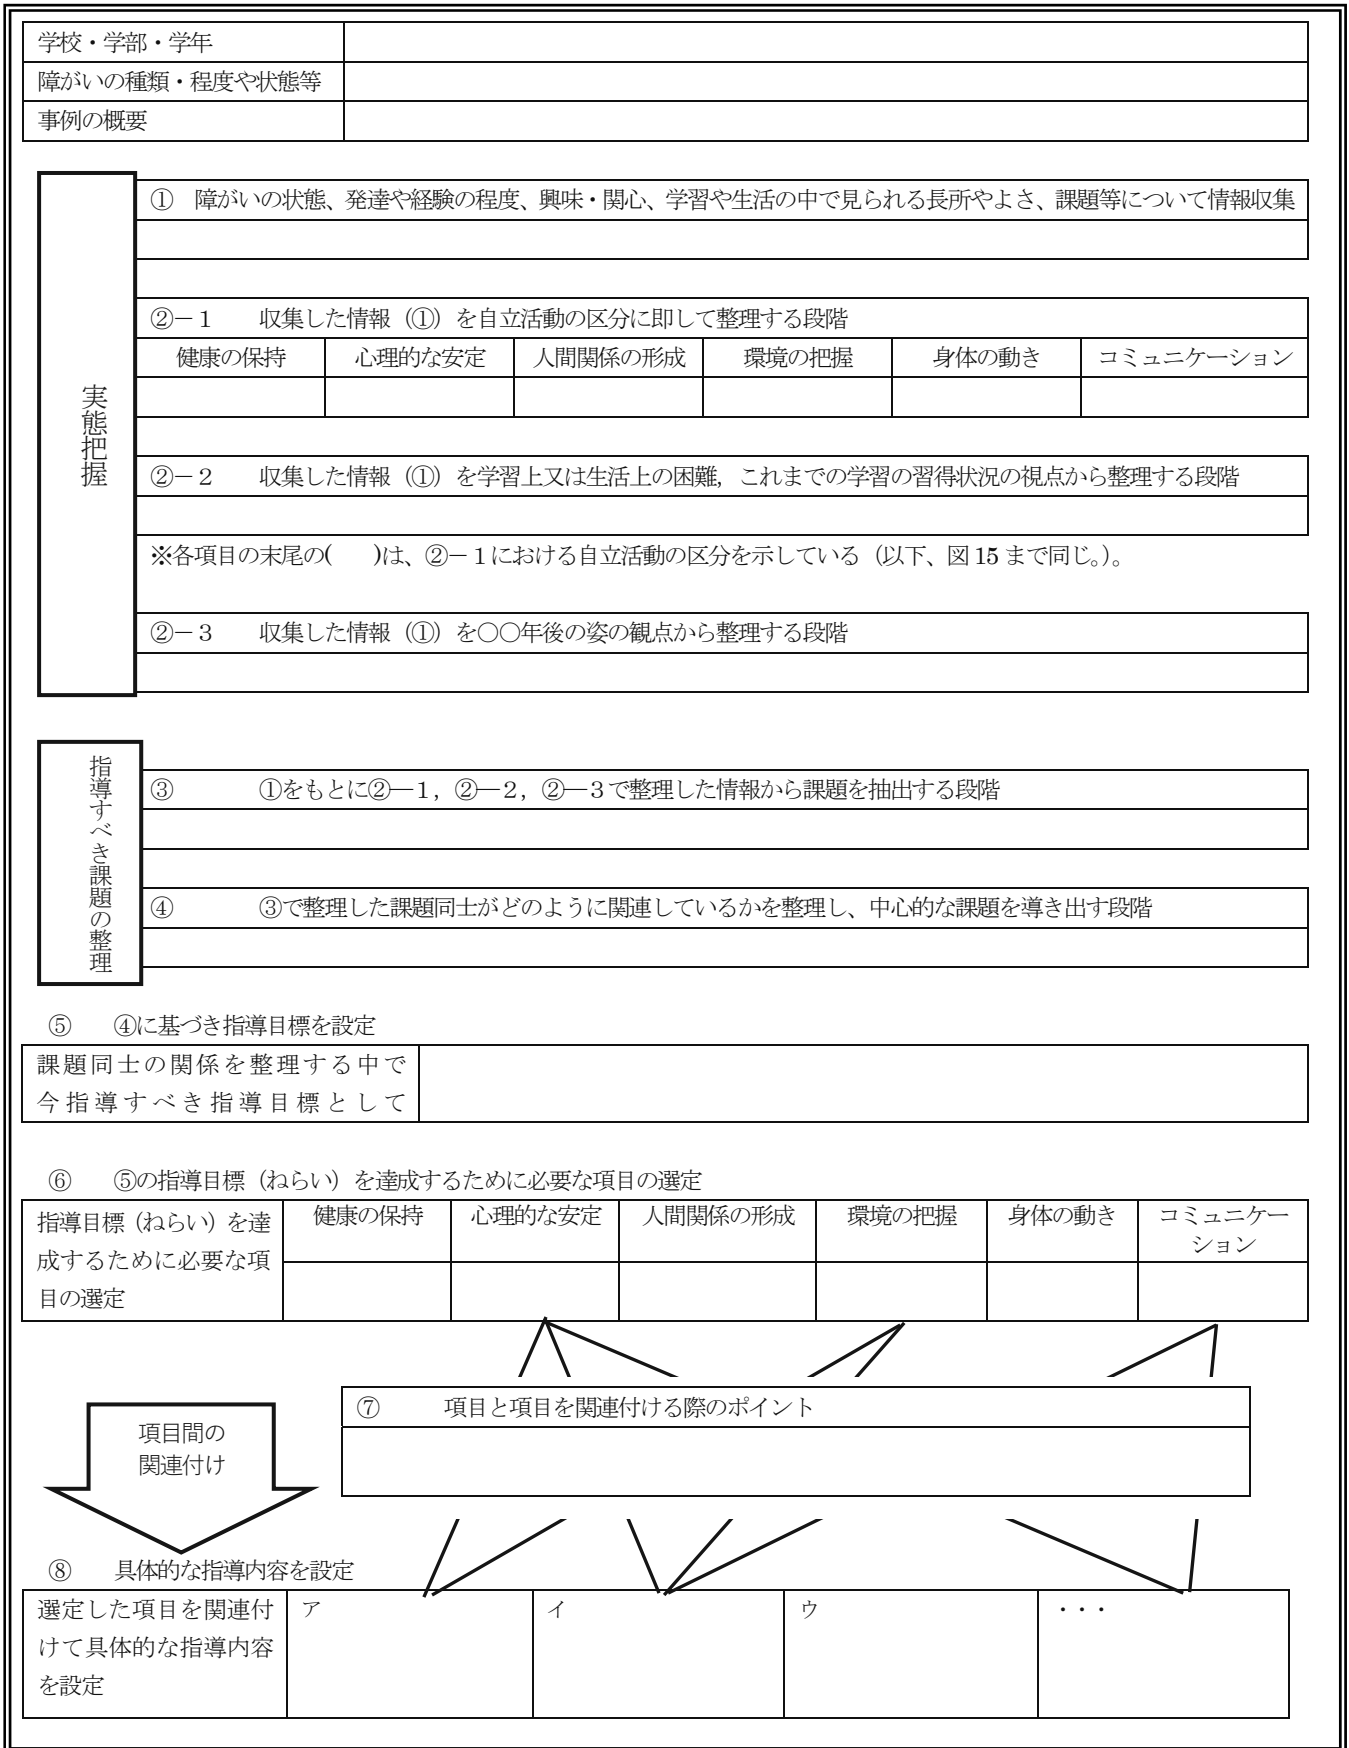 学校・学部・学年
障がいの種類・程度や状態等
事例の概要
実態把握
① 障がいの状態、発達や経験の程度、興味・関心、学習や生活の中で見られる長所やよさ、課題等について情報収集
②－１ 収集した情報（①）を自立活動の区分に即して整理する段階
健康の保持 心理的な安定 人間関係の形成 環境の把握 身体の動き コミュニケーション
②－２ 収集した情報（①）を学習上又は生活上の困難，これまでの学習の習得状況の視点から整理する段階
※各項目の末尾の( )は、②－１における自立活動の区分を示している（以下、図 15 まで同じ。）。
②－３ 収集した情報（①）を○○年後の姿の観点から整理する段階
指導すべき課題の整理
③ ①をもとに②―１，②―２，②―３で整理した情報から課題を抽出する段階
④ ③で整理した課題同士がどのように関連しているかを整理し、中心的な課題を導き出す段階
⑤ ④に基づき指導目標を設定
課題同士の関係を整理する中で
今指導すべき指導目標として
⑥ ⑤の指導目標（ねらい）を達成するために必要な項目の選定
指導目標（ねらい）を達
成するために必要な項
目の選定
健康の保持 心理的な安定 人間関係の形成 環境の把握 身体の動き コミュニケー
ション
⑦ 項目と項目を関連付ける際のポイント
項目間の
関連付け
⑧ 具体的な指導内容を設定
選定した項目を関連付
けて具体的な指導内容
を設定
ア イ ウ ・・・